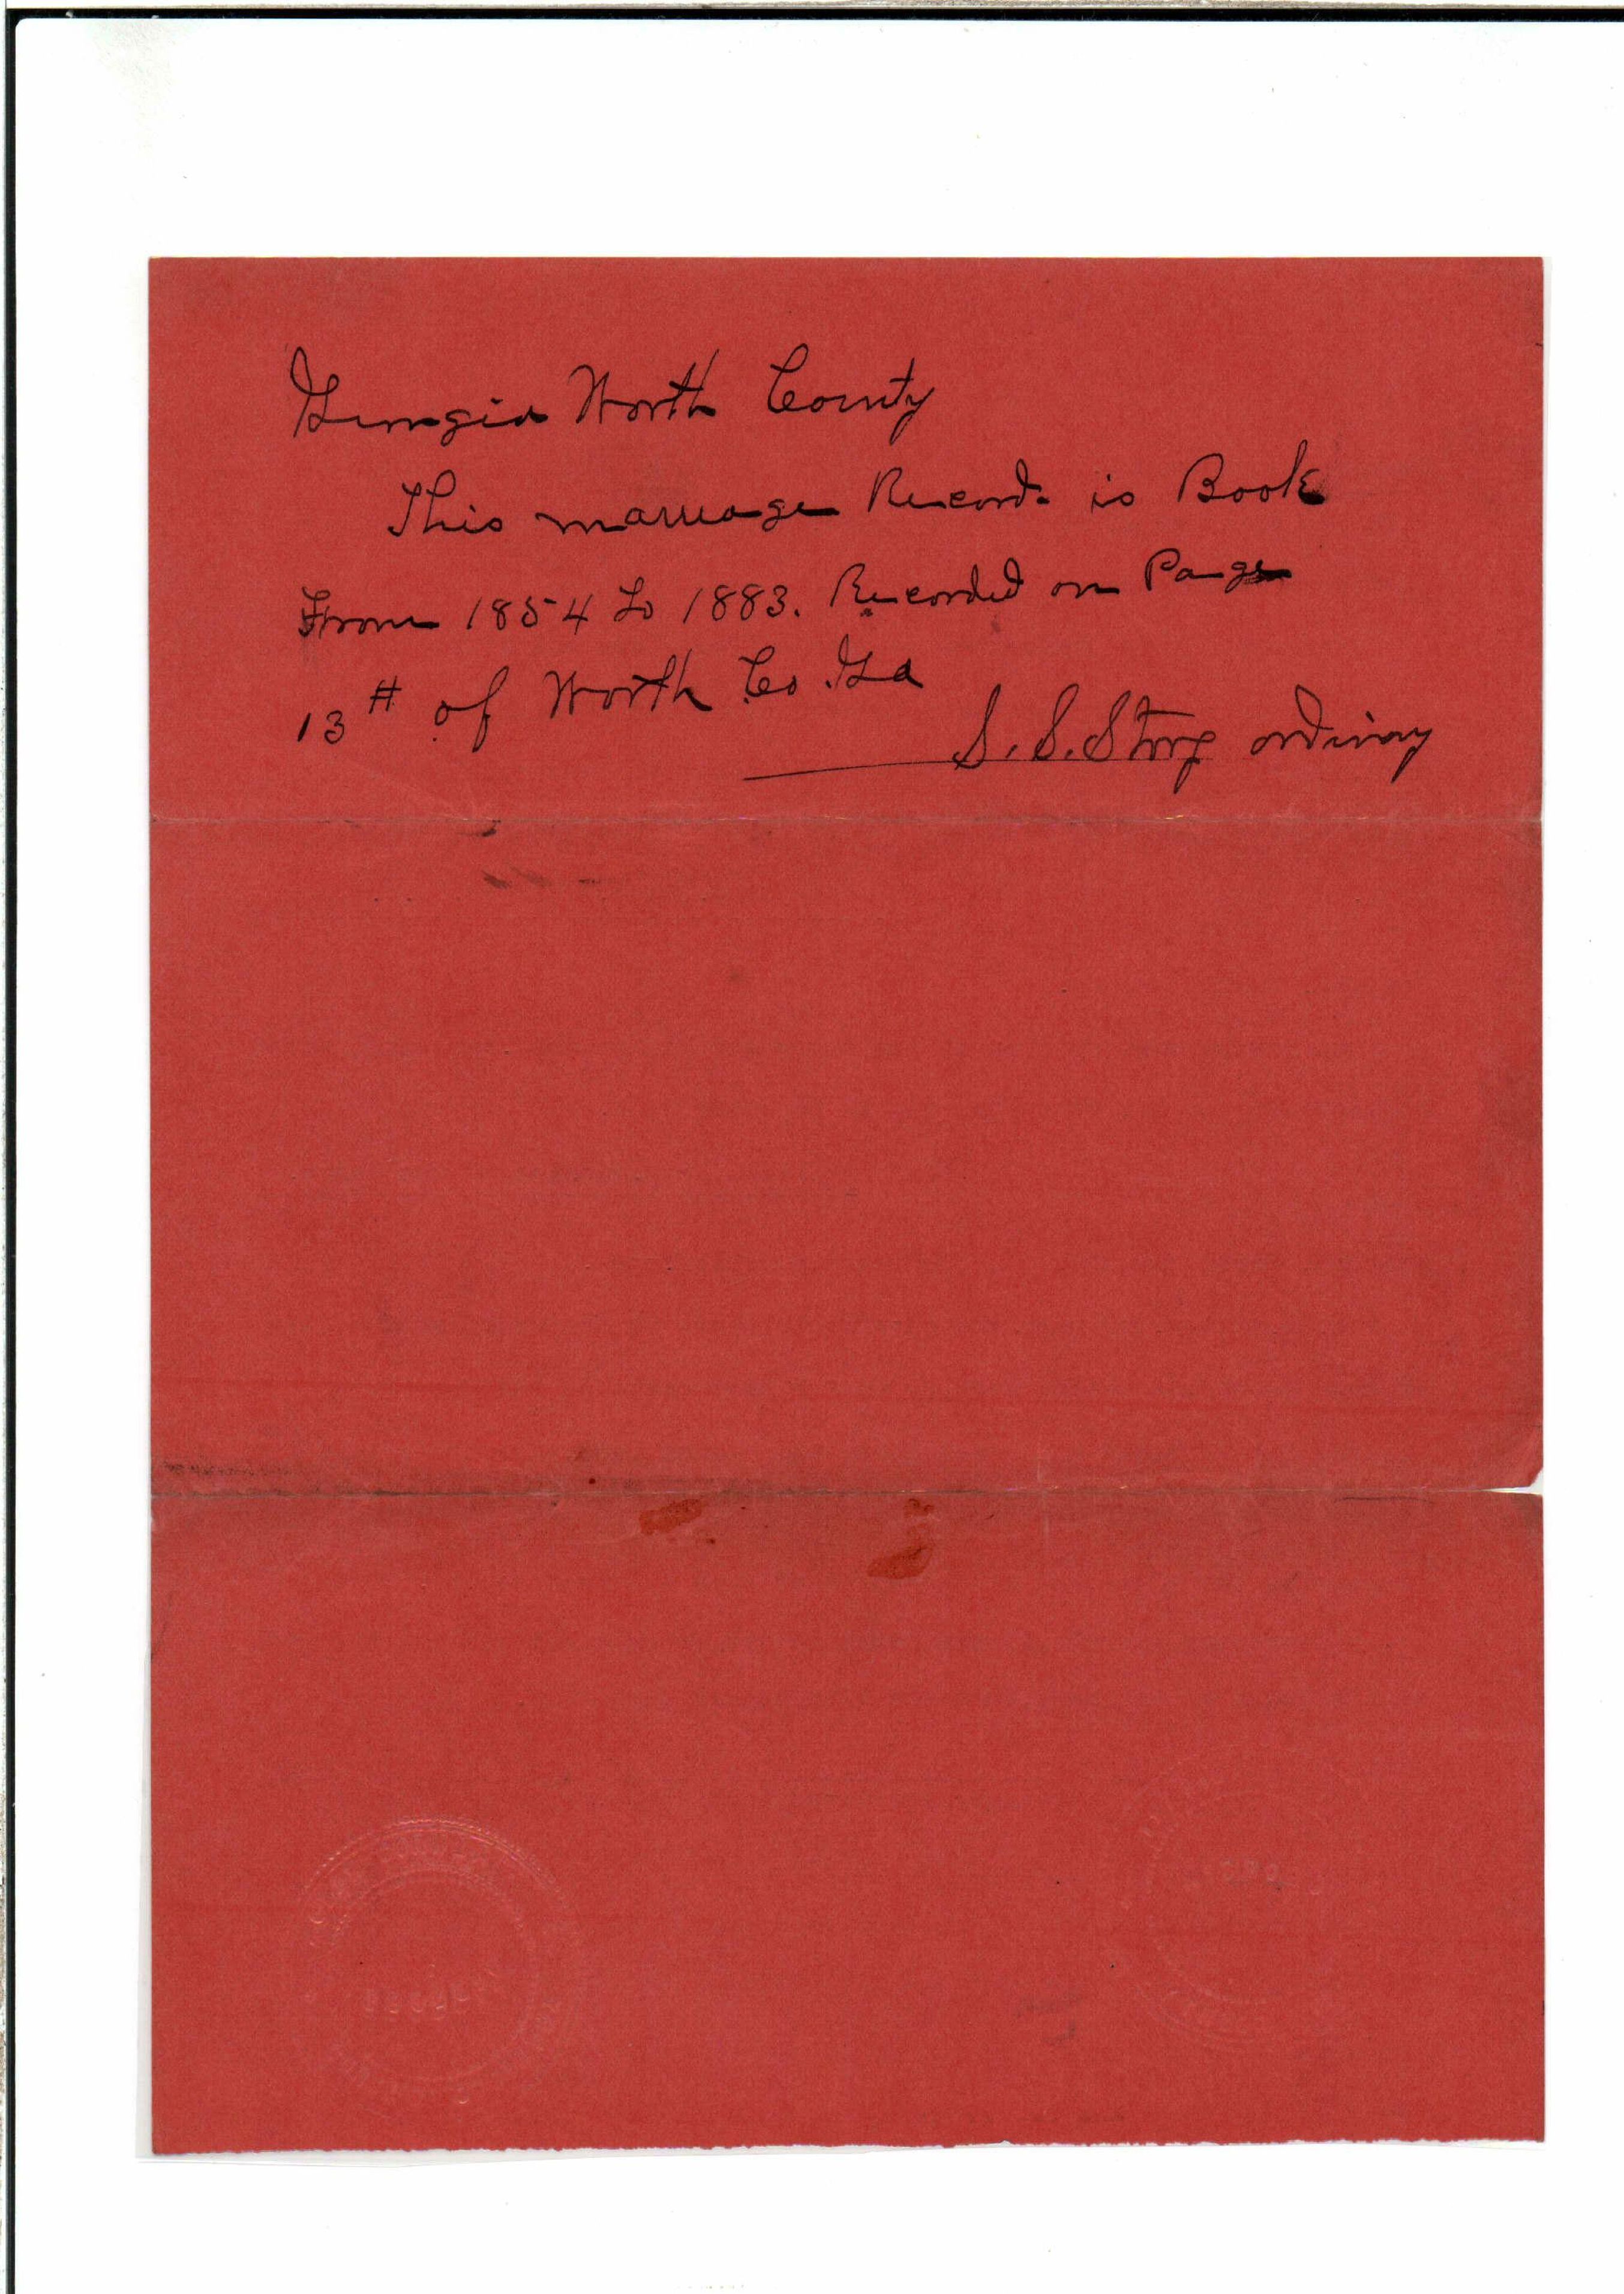 Georgia Worth County
This marriage Record is Book
From 1854 to 1883. Recorded on Page
13 # of Worth Co. Ga
S. S. Story ordinary